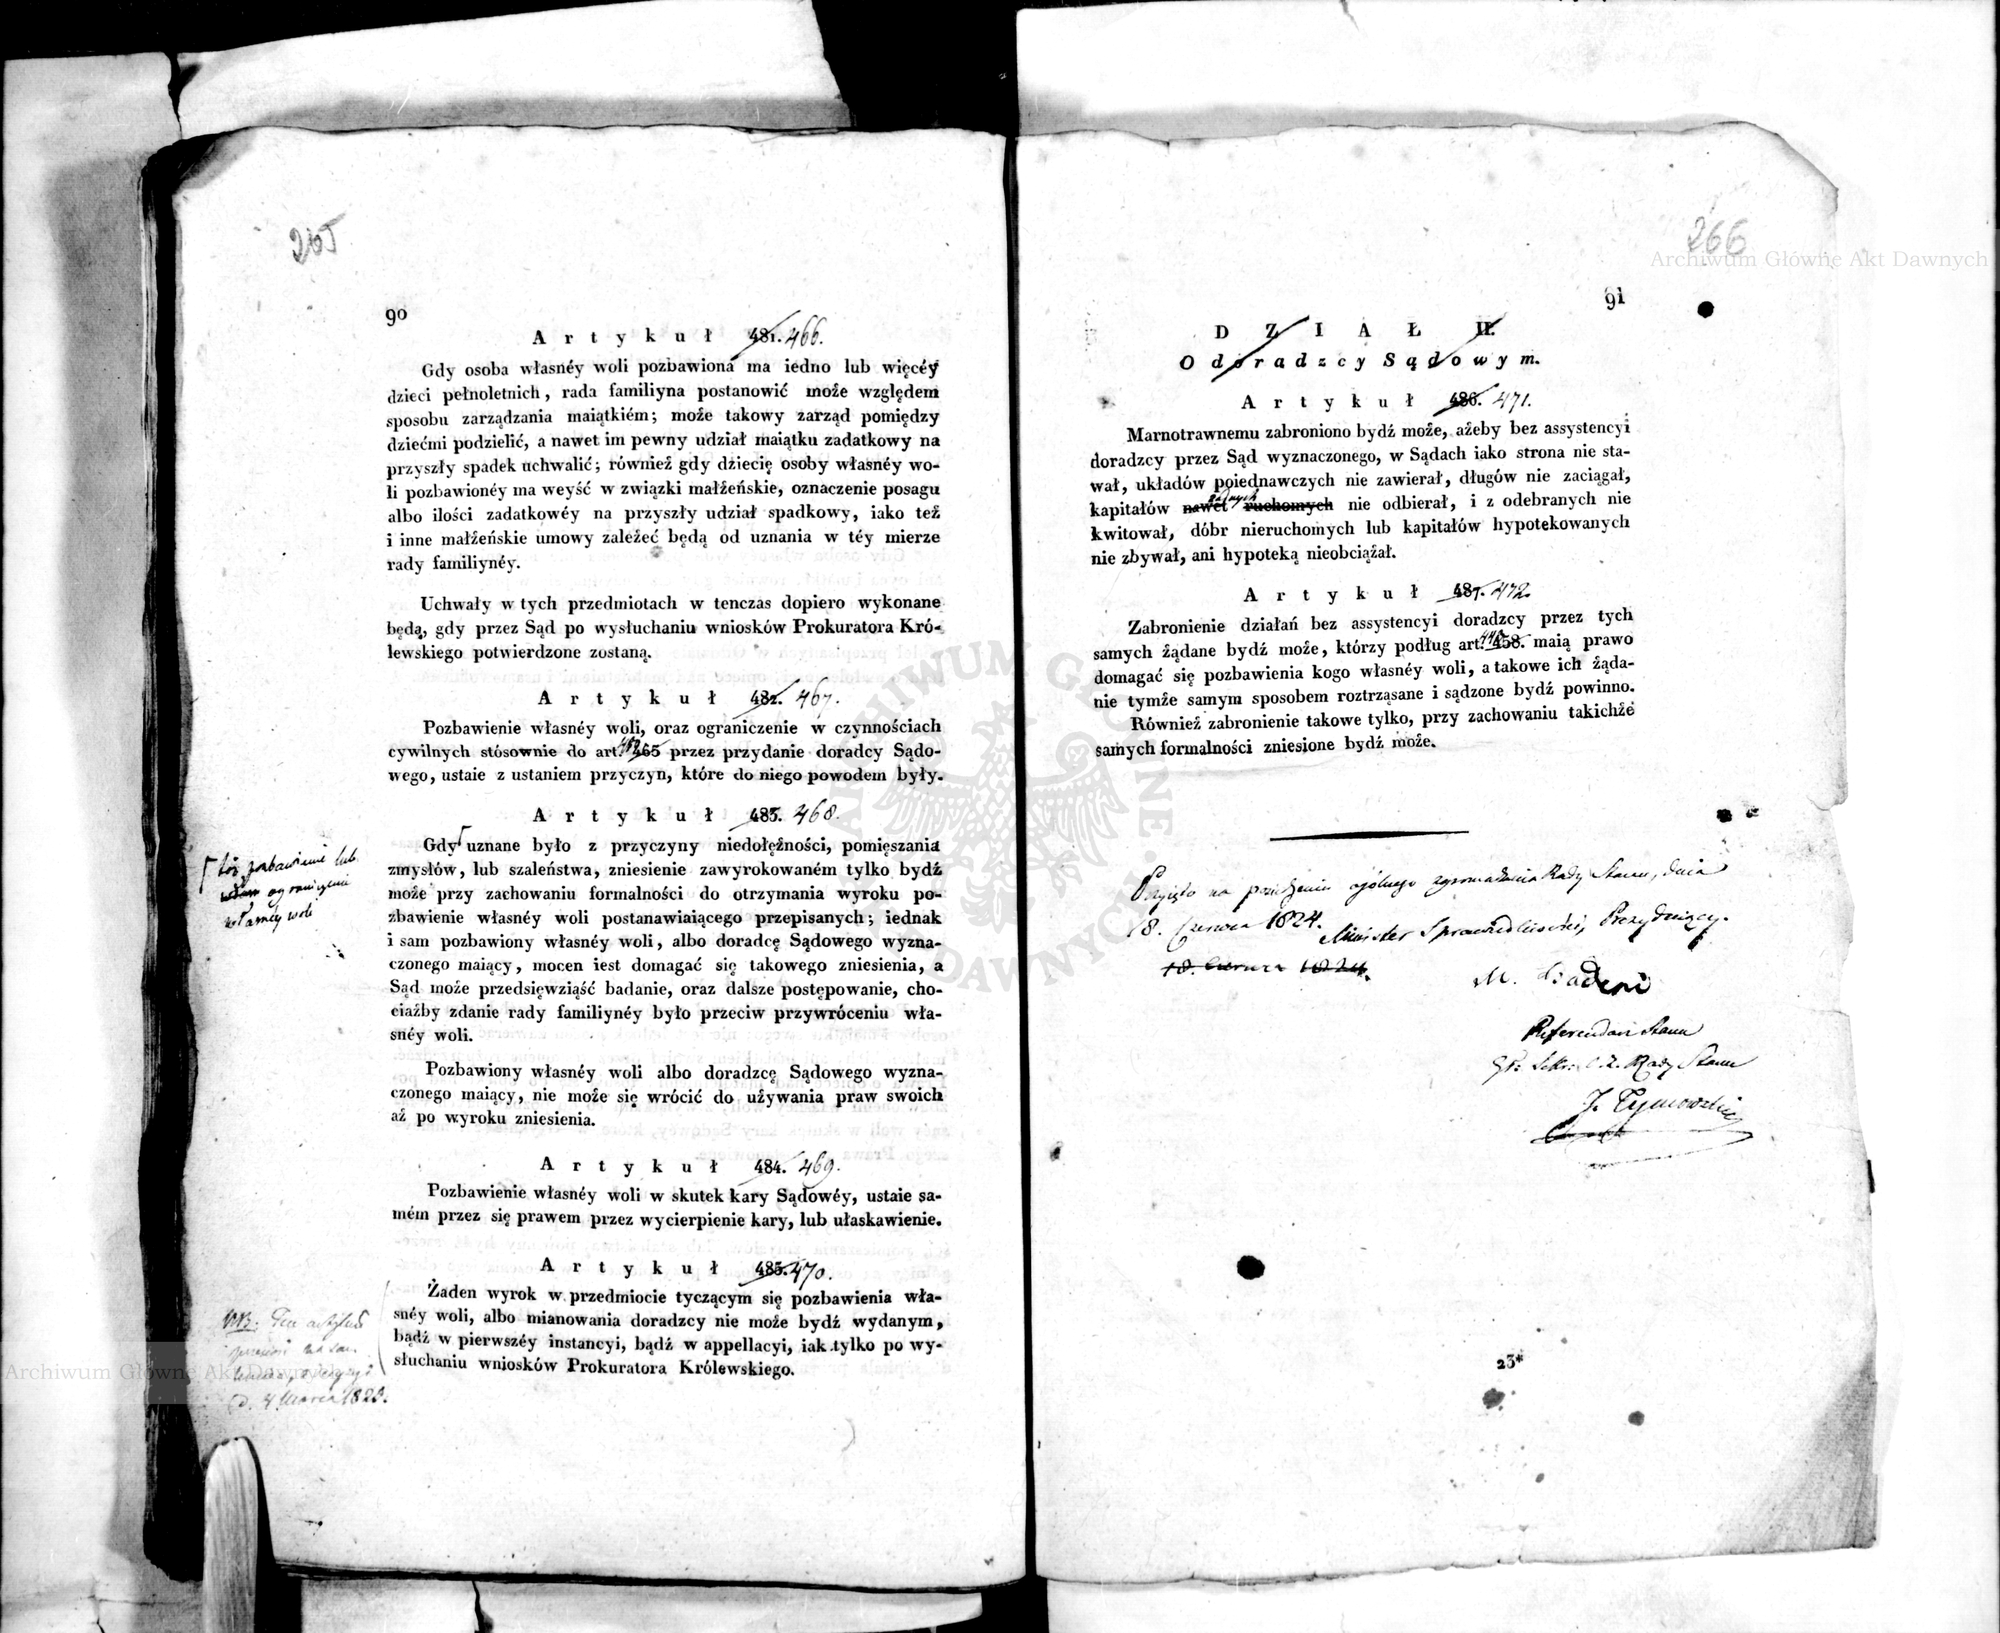 265
90
Artykuł 481. 466.
Gdy osoba własnéy woli pozbawiona ma iedno lub więcéy
dzieci pełnoletnich, rada familiyna postanowić może względem
sposobu zarządzania maiątkiém; może takowy zarząd pomiędzy
dziećmi podzielić, a nawet im pewny udział maiątku zadatkowy na
przyszły spadek uchwalić; również gdy dziecię osoby własnéy wo-
li pozbawionéy ma weyść w związki małżeńskie, oznaczenie posagu
albo ilości zadatkowéy na przyszły udział spadkowy, iako też
i inne małżeńskie umowy zależeć będą od uznania w téy mierze
rady familiynéy.
Uchwały w tych przedmiotach w tenczas dopiero wykonane
będą, gdy przez Sąd po wysłuchaniu wniosków Prokuratora Kró-
lewskiego potwierdzone zostaną.
Artykuł 482. 467.
Pozbawienie własnéy woli, oraz ograniczenie w czynnościach
cywilnych stósownie do art. 465 przez przydanie doradcy Sądo-
wego, ustaie z ustaniem przyczyn, które do niego powodem były.
Artykuł 483. 468.
Gdy uznane było z przyczyny niedołężności, pomięszania
zmysłów, lub szaleństwa, zniesienie zawyrokowaném tylko bydź
może przy zachowaniu formalności do otrzymania wyroku po-
zbawienie własnéy woli postanawiaiącego przepisanych; iednak
i sam pozbawiony własnéy woli, albo doradcę Sądowego wyzna-
czonego maiący, mocen iest domagać się takowego zniesienia, a
Sąd może przedsięwziąść badanie, oraz dalsze postępowanie, cho-
ciażby zdanie rady familiynéy było przeciw przywróceniu wła-
snéy woli.
toż pozbawienie lub
ograniczenie
własnéy woli
Pozbawiony własnéy woli albo doradzcę Sądowego wyzna-
czonego maiący, nie może się wrócić do używania praw swoich
aż po wyroku zniesienia.
Artykuł 484. 469.
Pozbawienie własnéy woli w skutek kary Sądowéy, ustaie sa-
mém przez się prawem przez wycierpienie kary, lub ułaskawienie.
Artykuł 485. 470.
Żaden wyrok w przedmiocie tyczącym się pozbawienia wła-
snéy woli, albo mianowania doradzcy nie może bydź wydanym,
bądź w pierwszéy instancyi, bądź w appellacyi, iak tylko po wy-
słuchaniu wniosków Prokuratora Królewskiego.
NB. Ten artykuł
d. 4 Marca 1825.
266
91
DZIAŁ II.
O doradzcy Sądowym.
Artykuł 486. 471.
Marnotrawnemu zabroniono bydź może, ażeby bez assystencyi
doradzcy przez Sąd wyznaczonego, w Sądach iako strona nie sta-
wał, układów poiednawczych nie zawierał, długów nie zaciągał,
żadnych
kapitałów nawet ruchomych nie odbierał, i z odebranych nie
kwitował, dóbr nieruchomych lub kapitałów hypotekowanych
nie zbywał, ani hypoteką nieobciążał.
Artykuł 487. 472.
Zabronienie działań bez assystencyi doradzcy przez tych
samych żądane bydź może, którzy podług art. 458. maią prawo
domagać się pozbawienia kogo własnéy woli, a takowe ich żąda-
nie tymże samym sposobem roztrząsane i sądzone bydź powinno.
Również zabronienie takowe tylko, przy zachowaniu takichże
samych formalności zniesione bydź może.
Przyięto na posiedzeniu ogólnego zgromadzenia Rady Stanu, dnia
18. Czerwca 1824.
Minister Sprawiedliwości, Prezyduiący.
18. Czerwca 1824.
M. Badeni
Referendarz Stanu
Rady Stanu
J. Tymowski
23*
Archiwum Główne Akt Dawnych
Archiwum Główne Akt Dawnych
ARCHIWUM GŁÓWNE AKT DAWNYCH